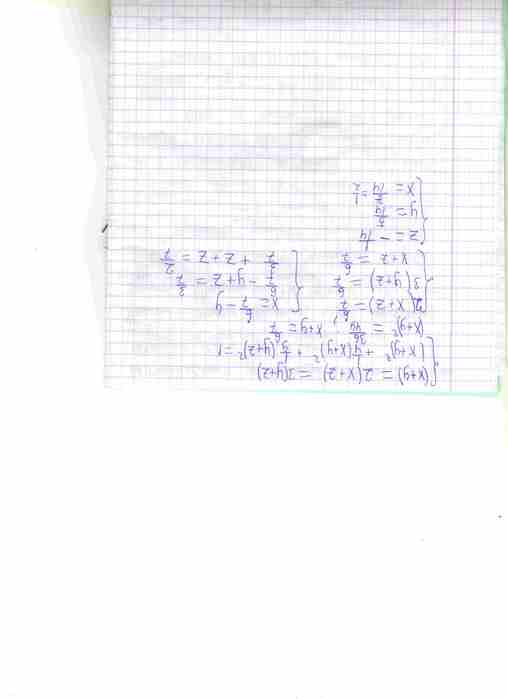 (x+y) = 2(x+z) = 3(y+z)
(x+y)² + 1/4(x+y)² + 1/9(y+z)² = 1
(x+y)² = 36/49 ; x+y = 6/7
2(x+z) = 6/7
3(y+z) = 6/7
x+z = 6/7
x = 6/7 - y
6/7 - y+z = 3/7
+ z+z = 2/7
z = - 1/14
y = 5/14
x = 7/14 = 1/2